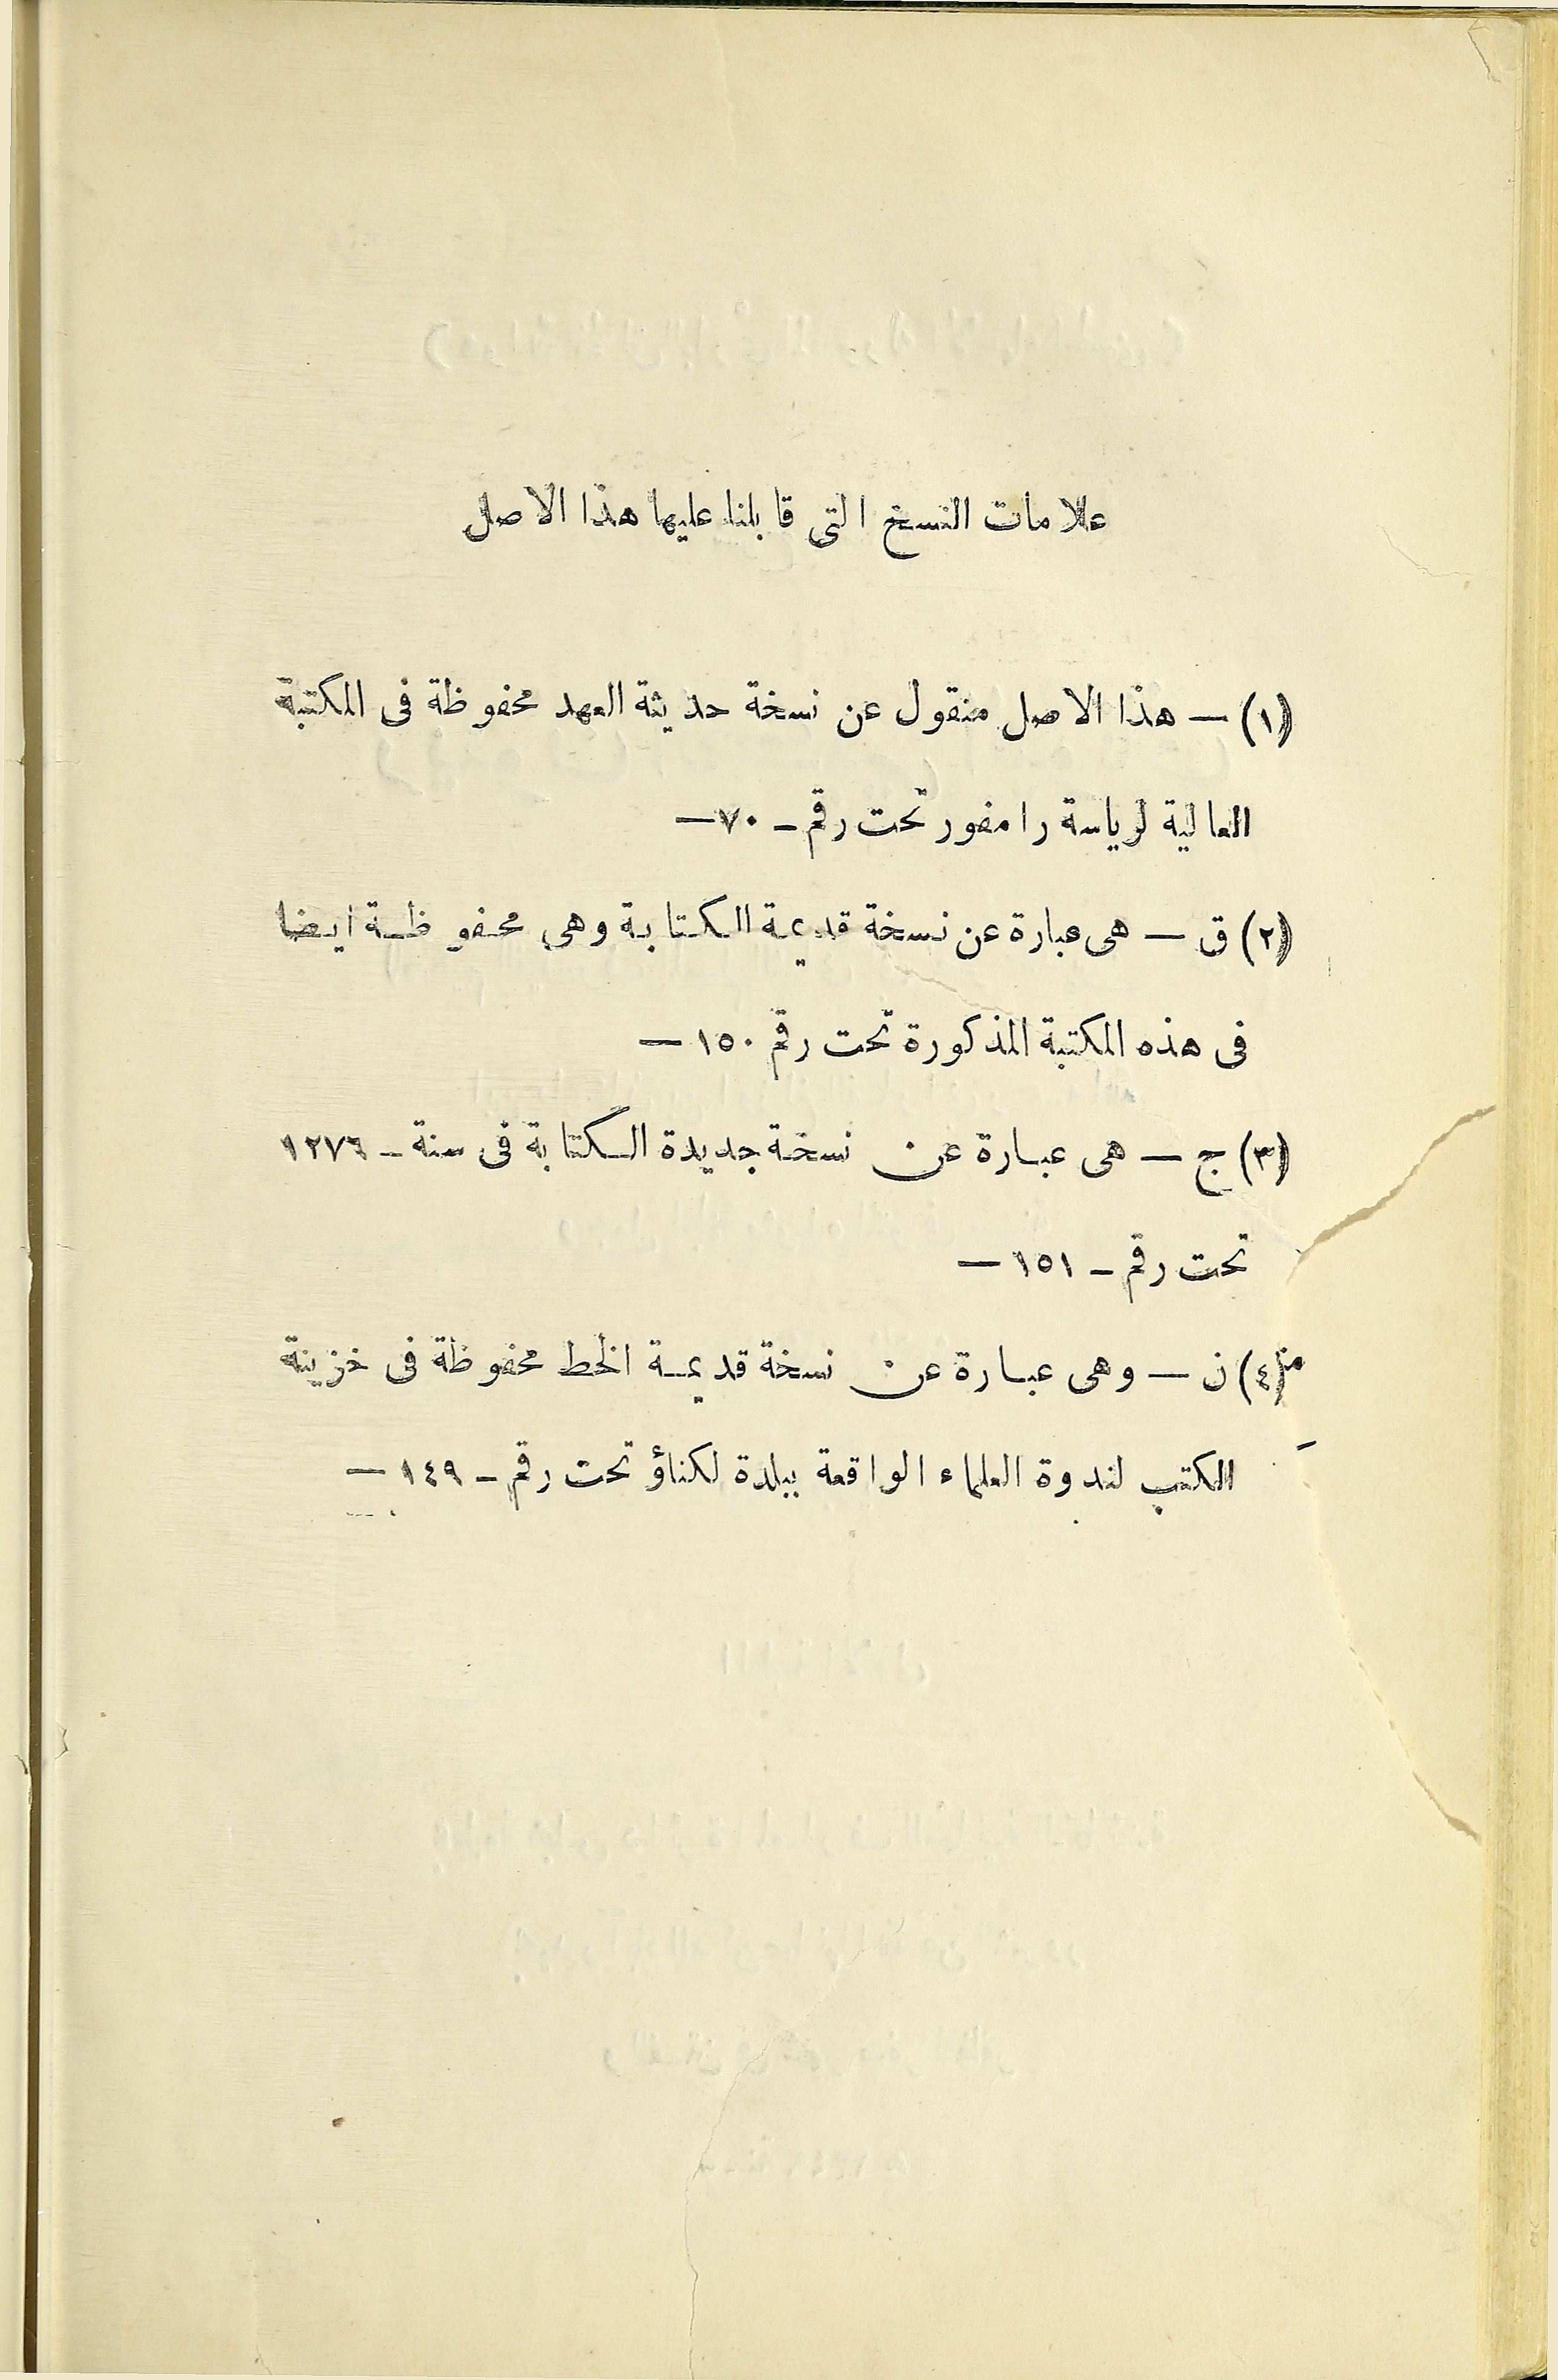 علامات النسخ التى قابلنا عليها هذا الاصل
(١) — هذا الاصل منقول عن نسخة حديثة العهد محفوظة فى المكتبة
العالية لرياسة رامفور تحت رقم - ٧٠ —
(٢) ق — هى عبارة عن نسخة قديمة الكتابة وهى محفوظة ايضا
فى هذه المكتبة المذكورة تحت رقم ١٥٠ —
(٣) ج — هى عبارة عن نسخة جديدة الكتابة فى سنة - ١٢٧٦
تحت رقم - ١٥١ —
(٤) ن — وهى عبارة عن نسخة قديمة الخط محفوظة فى خزينة
الكتب لندوة العلماء الواقعة ببلدة لكناؤ تحت رقم - ١٤٩ —